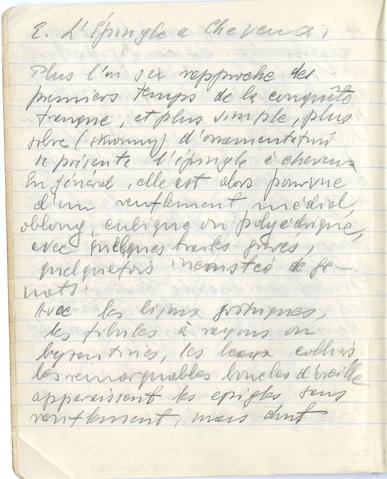 E. L'Épingle a Cheveux.
Plus l'on se rapproche des
premiers temps de la conquête
franque, et plus simple, plus
sobre (skromny) d'ornementation
se présente l'épingle à cheveux
En général, elle est alors pourvue
d'un renflement médial
oblong, cubique ou polyédrique,
avec quelques traits gravés,
quelquefois incrusté de ge-
nats.
Avec les bijoux gothiques,
les fibules à rayons ou
byzantines, les beaux colliers,
les remarquables boucles d'oreille
apparaissent les epigles sans
renflement, mais dont